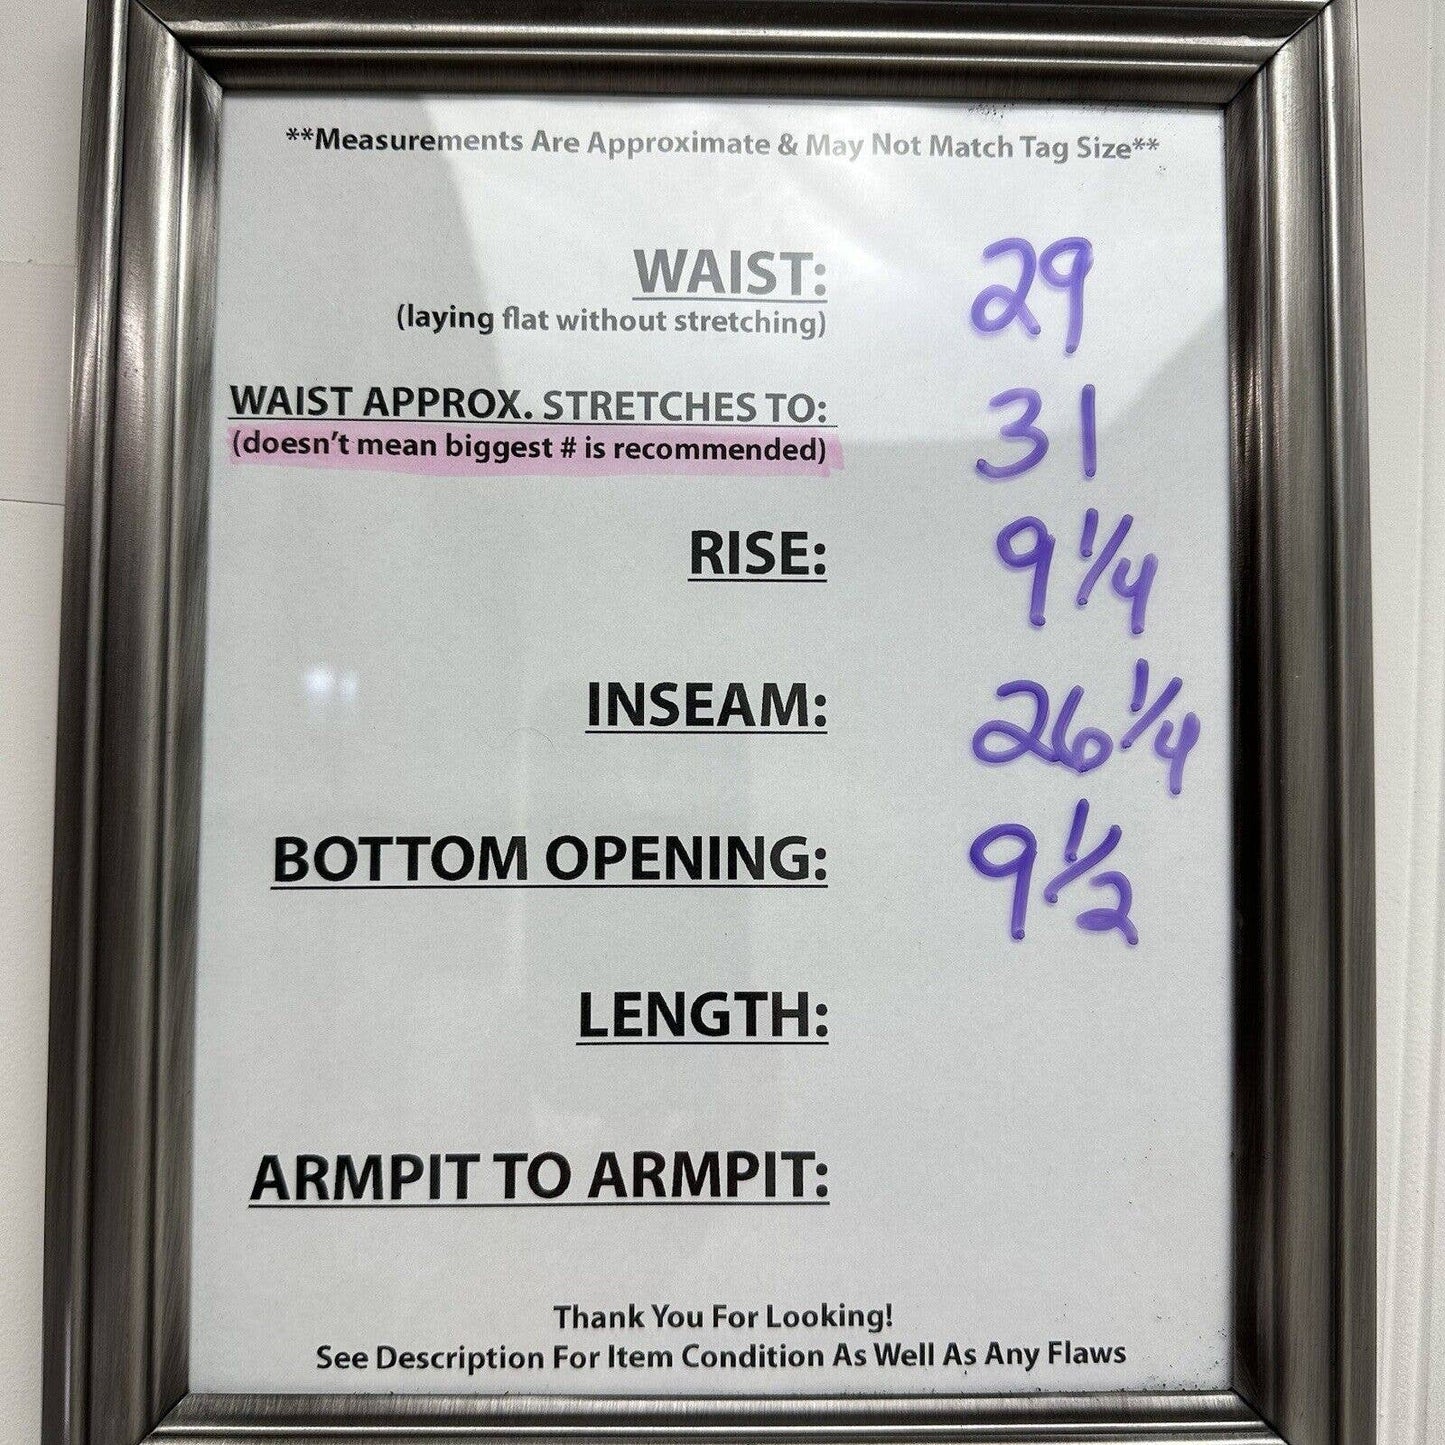 **Measurements Are Approximate & May Not Match Tag Size**
WAIST: 29
(laying flat without stretching)
WAIST APPROX. STRETCHES TO: 31
(doesn't mean biggest # is recommended)
RISE: 9 1/4
INSEAM: 26 1/4
BOTTOM OPENING: 9 1/2
LENGTH:
ARMPIT TO ARMPIT:
Thank You For Looking!
See Description For Item Condition As Well As Any Flaws